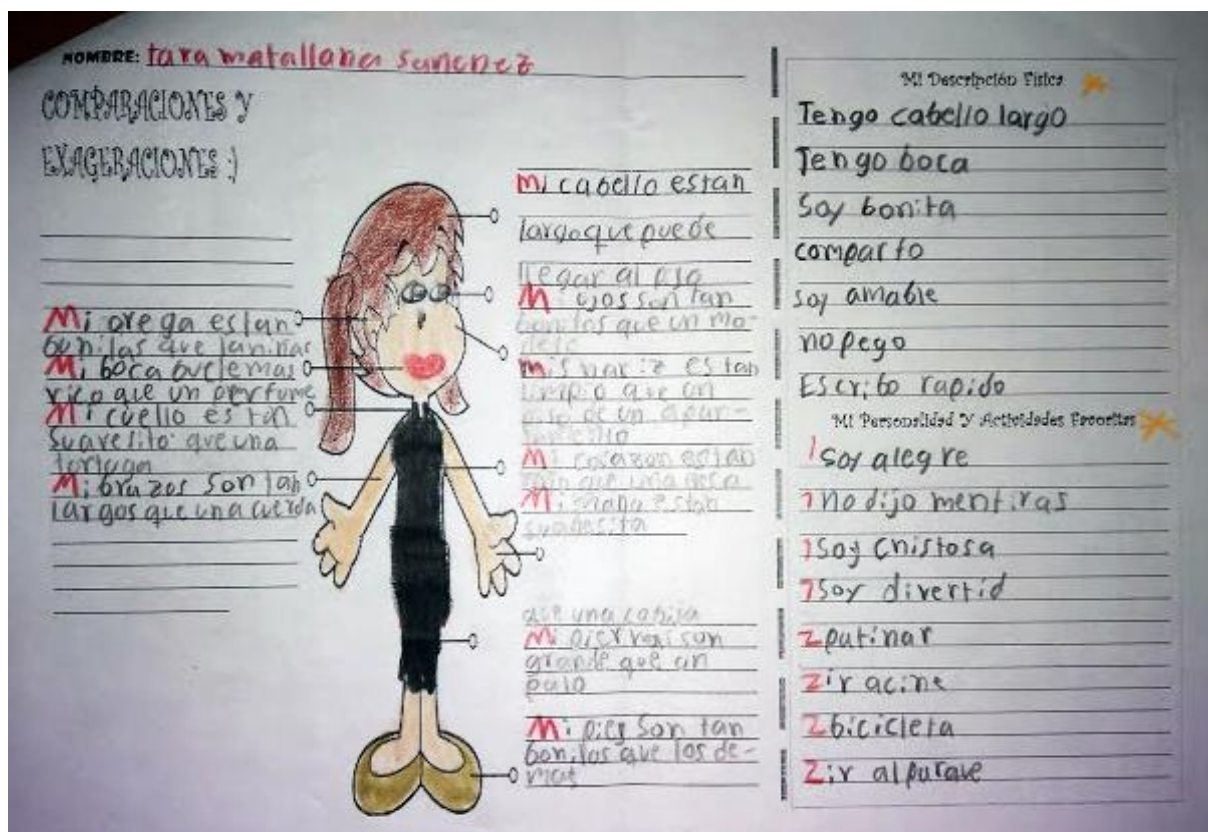 NOMBRE: tara matallana sanchez
COMPARACIONES Y
EXAGERACIONES :)
Mi orega es tan
bonilas que
Mi boca buele mas
rico que un perfume
Mi cuello es tan
suavesito que una
tortuga
Mi brazos son tan
largos que una cuerda
Mi cabello es tan
largo que puede
llegar al piso
Mi ojos son tan
bonitos que un mo-
delo
Mis nariz es tan
limpio que un
piso de un apar-
tamento
Mi corazon es tan
que una
Mi mano es tan
suavesita
que una cobija
Mi son
grande que un
palo
Mi pies son tan
bonilos que los de-
mas
Mi Descripción Física
Tengo cabello largo
Tengo boca
Soy bonita
comparto
soy amable
no pego
Escribo rapido
Mi Personalidad Y Actividades Favoritas
1 Soy alegre
1 no dijo mentiras
1 Soy chistosa
1 Soy divertid
2 patinar
2 ir a cine
2 bicicleta
2 ir al parque